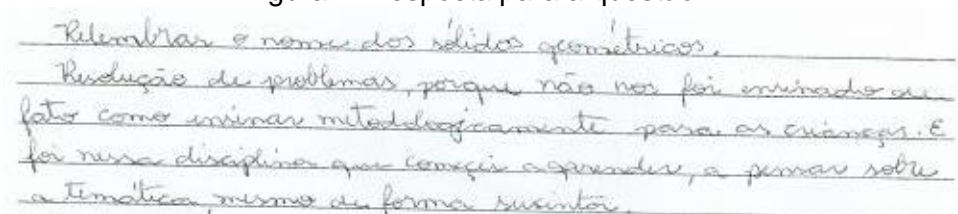 Relembrar o nome dos sólidos geométricos.
Resolução de problemas, porque não nos foi ensinado de
fato como ensinar metodologicamente para as crianças. E
foi nessa disciplina que comecei a aprender, a pensar sobre
a temática, mesmo de forma sucinta.